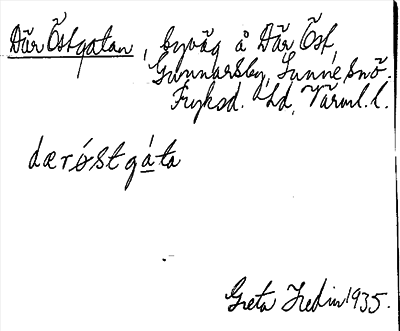 Där Östgatan, byväg å Där Öst,
Gunnarsby, Sunne snö.
Fryksd. hd, Värml. l.
dærøstgáta
Greta Hedin 1935.